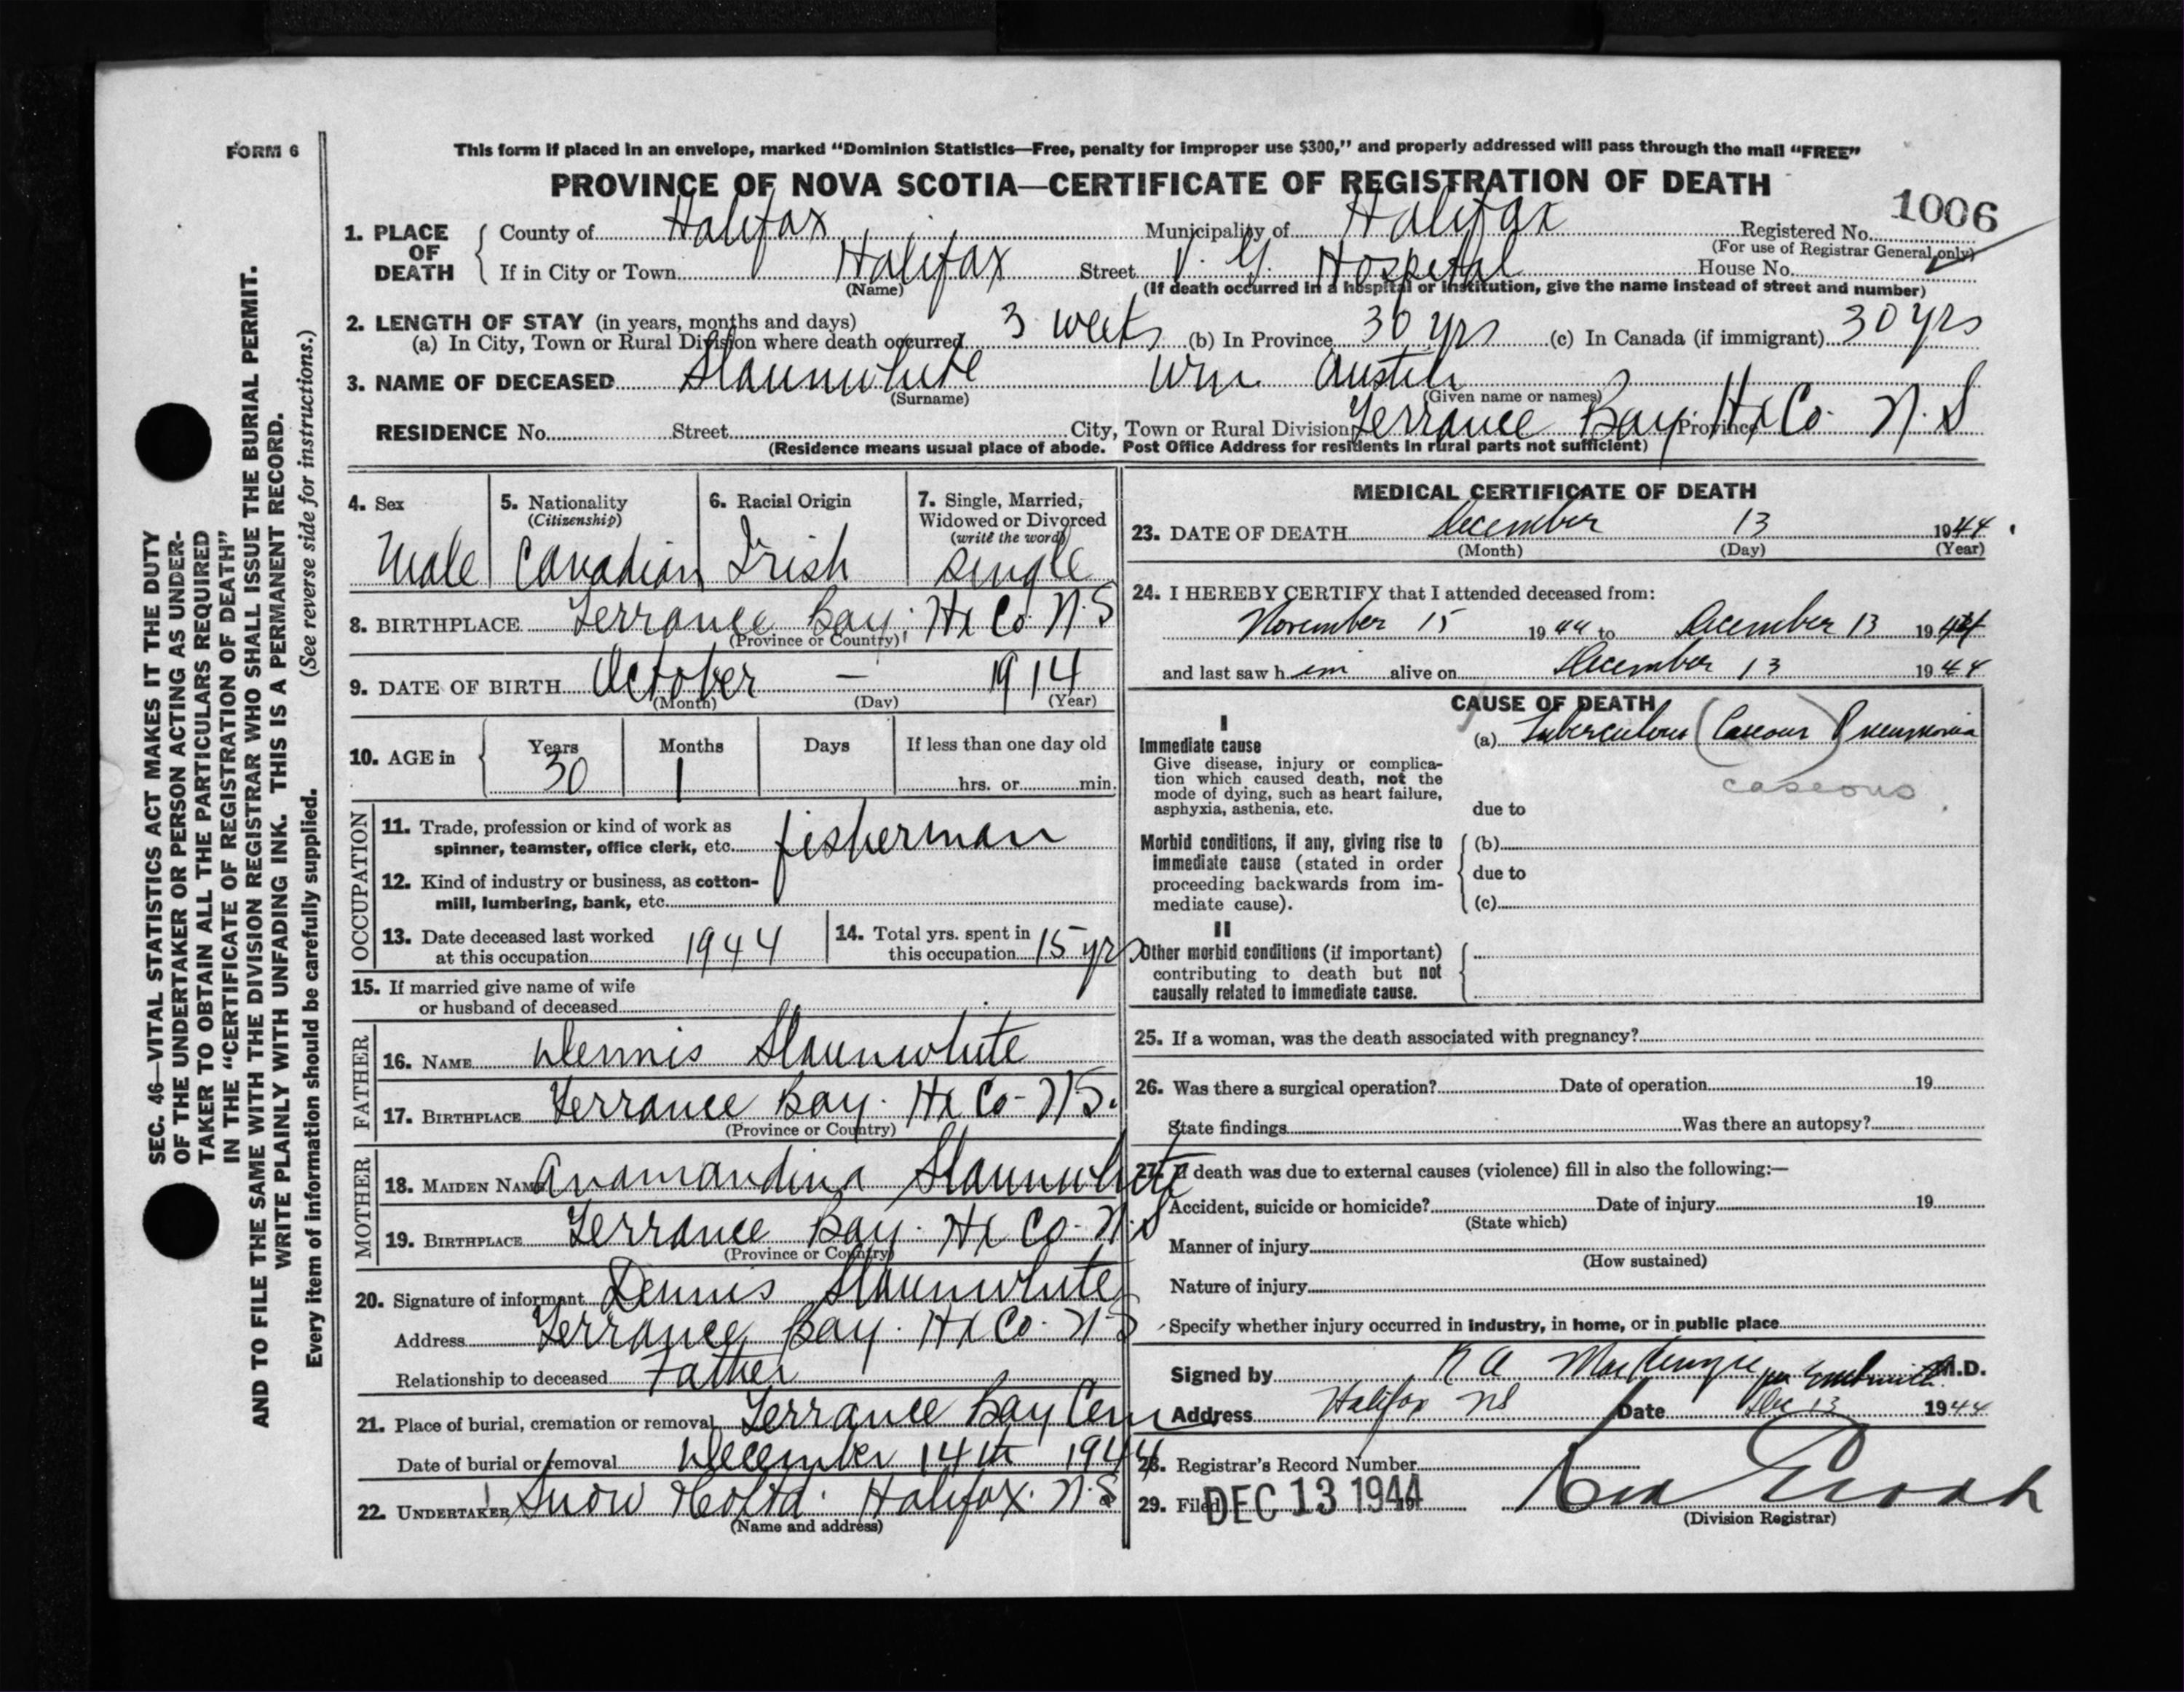 FORM 6
This form if placed in an envelope, marked "Dominion Statistics—Free, penalty for improper use $300," and properly addressed will pass through the mail "FREE"
PROVINCE OF NOVA SCOTIA—CERTIFICATE OF REGISTRATION OF DEATH
1006
1. PLACE OF DEATH County of Halifax Municipality of Halifax Registered No.
(For use of Registrar General only)
If in City or Town Halifax Street V. G. Hospital House No.
(Name) (If death occurred in a hospital or institution, give the name instead of street and number)
2. LENGTH OF STAY (in years, months and days)
(a) In City, Town or Rural Division where death occurred 3 weeks (b) In Province 30 yrs (c) In Canada (if immigrant) 30 yrs
3. NAME OF DECEASED Slaunwhite Wm Austin
(Surname) (Given name or names)
RESIDENCE No. Street City, Town or Rural Division Terrance Bay. Province Hx Co. N.S
(Residence means usual place of abode. Post Office Address for residents in rural parts not sufficient)
4. Sex
Male
5. Nationality
(Citizenship)
Canadian
6. Racial Origin
Irish
7. Single, Married,
Widowed or Divorced
(write the word)
single
8. BIRTHPLACE Terrance Bay. Hx Co. N.S
(Province or Country)
9. DATE OF BIRTH October — 1914
(Month) (Day) (Year)
10. AGE in Years Months Days If less than one day old
30 1 hrs. or min.
OCCUPATION
11. Trade, profession or kind of work as
spinner, teamster, office clerk, etc. fisherman
12. Kind of industry or business, as cotton-
mill, lumbering, bank, etc.
13. Date deceased last worked
at this occupation 1944
14. Total yrs. spent in
this occupation 15 yrs
15. If married give name of wife
or husband of deceased
FATHER
16. NAME Dennis Slaunwhite
17. BIRTHPLACE Terrance Bay. Hx Co- N.S.
(Province or Country)
MOTHER
18. MAIDEN NAME Slaunwhite
19. BIRTHPLACE Terrance Bay. Hx Co- N.S
(Province or Country)
20. Signature of informant Dennis Slaunwhite
Address Terrance Bay. Hx Co. N-S
Relationship to deceased Father
21. Place of burial, cremation or removal Terrance Bay Cem
Date of burial or removal December 14th 1944
22. UNDERTAKER Snow Co Ltd. Halifax. N.S
(Name and address)
MEDICAL CERTIFICATE OF DEATH
23. DATE OF DEATH December 13 1944
(Month) (Day) (Year)
24. I HEREBY CERTIFY that I attended deceased from:
November 15 1944 to December 13 1944
and last saw him alive on December 13 1944
CAUSE OF DEATH
I
Immediate cause
Give disease, injury or complica-
tion which caused death, not the
mode of dying, such as heart failure,
asphyxia, asthenia, etc.
(a) Tuberculous (Caseous) Pneumonia
caseous
due to
Morbid conditions, if any, giving rise to
immediate cause (stated in order
proceeding backwards from im-
mediate cause).
(b)
due to
(c)
II
Other morbid conditions (if important)
contributing to death but not
causally related to immediate cause.
25. If a woman, was the death associated with pregnancy?
26. Was there a surgical operation? Date of operation 19
State findings Was there an autopsy?
27. If death was due to external causes (violence) fill in also the following:—
Accident, suicide or homicide? Date of injury 19
(State which)
Manner of injury
(How sustained)
Nature of injury
Specify whether injury occurred in industry, in home, or in public place
Signed by K A MacKenzie per M.D.
Address Halifax NS Date Dec 13 1944
28. Registrar's Record Number
29. Filed DEC 13 1944
(Division Registrar)
SEC. 46—VITAL STATISTICS ACT MAKES IT THE DUTY
OF THE UNDERTAKER OR PERSON ACTING AS UNDER-
TAKER TO OBTAIN ALL THE PARTICULARS REQUIRED
IN THE "CERTIFICATE OF REGISTRATION OF DEATH"
AND TO FILE THE SAME WITH THE DIVISION REGISTRAR WHO SHALL ISSUE THE BURIAL PERMIT.
WRITE PLAINLY WITH UNFADING INK. THIS IS A PERMANENT RECORD.
Every item of information should be carefully supplied. (See reverse side for instructions.)